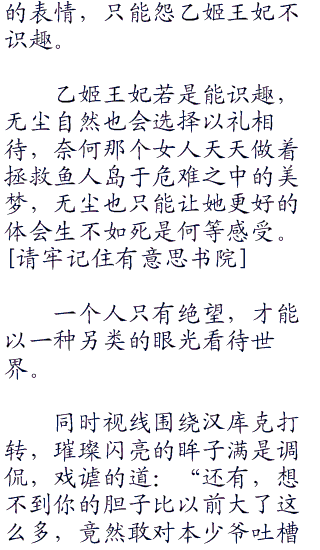 的表情，只能怨乙姬王妃不
识趣。
乙姬王妃若是能识趣，
无尘自然也会选择以礼相
待，奈何那个女人天天做着
拯救鱼人岛于危难之中的美
梦，无尘也只能让她更好的
体会生不如死是何等感受。
[请牢记住有意思书院]
一个人只有绝望，才能
以一种另类的眼光看待世
界。
同时视线围绕汉库克打
转，璀璨闪亮的眸子满是调
侃，戏谑的道：“还有，想
不到你的胆子比以前大了这
么多，竟然敢对本少爷吐槽